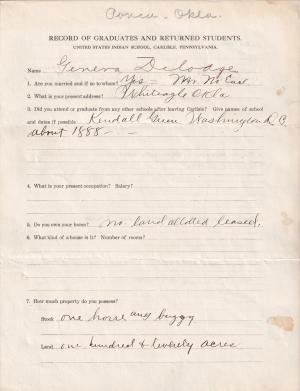 Ponca - Okla.
RECORD OF GRADUATES AND RETURNED STUDENTS.
UNITED STATES INDIAN SCHOOL, CARLISLE, PENNSYLVANIA.
Name Geneva Delodge
1. Are you married and if so to whom? Yes = Mr. Mc
2. What is your present address? Whiteagle Okla
3. Did you attend or graduate from any other schools after leaving Carlisle? Give names of school
and dates if possible Kendall Green Washington D. C.
about 1888 -
4. What is your present occupation? Salary?
5. Do you own your home? no land allotted leased.
6. What kind of a house is it? Number of rooms?
7. How much property do you possess?
Stock one horse and buggy
Land one hundred & acres